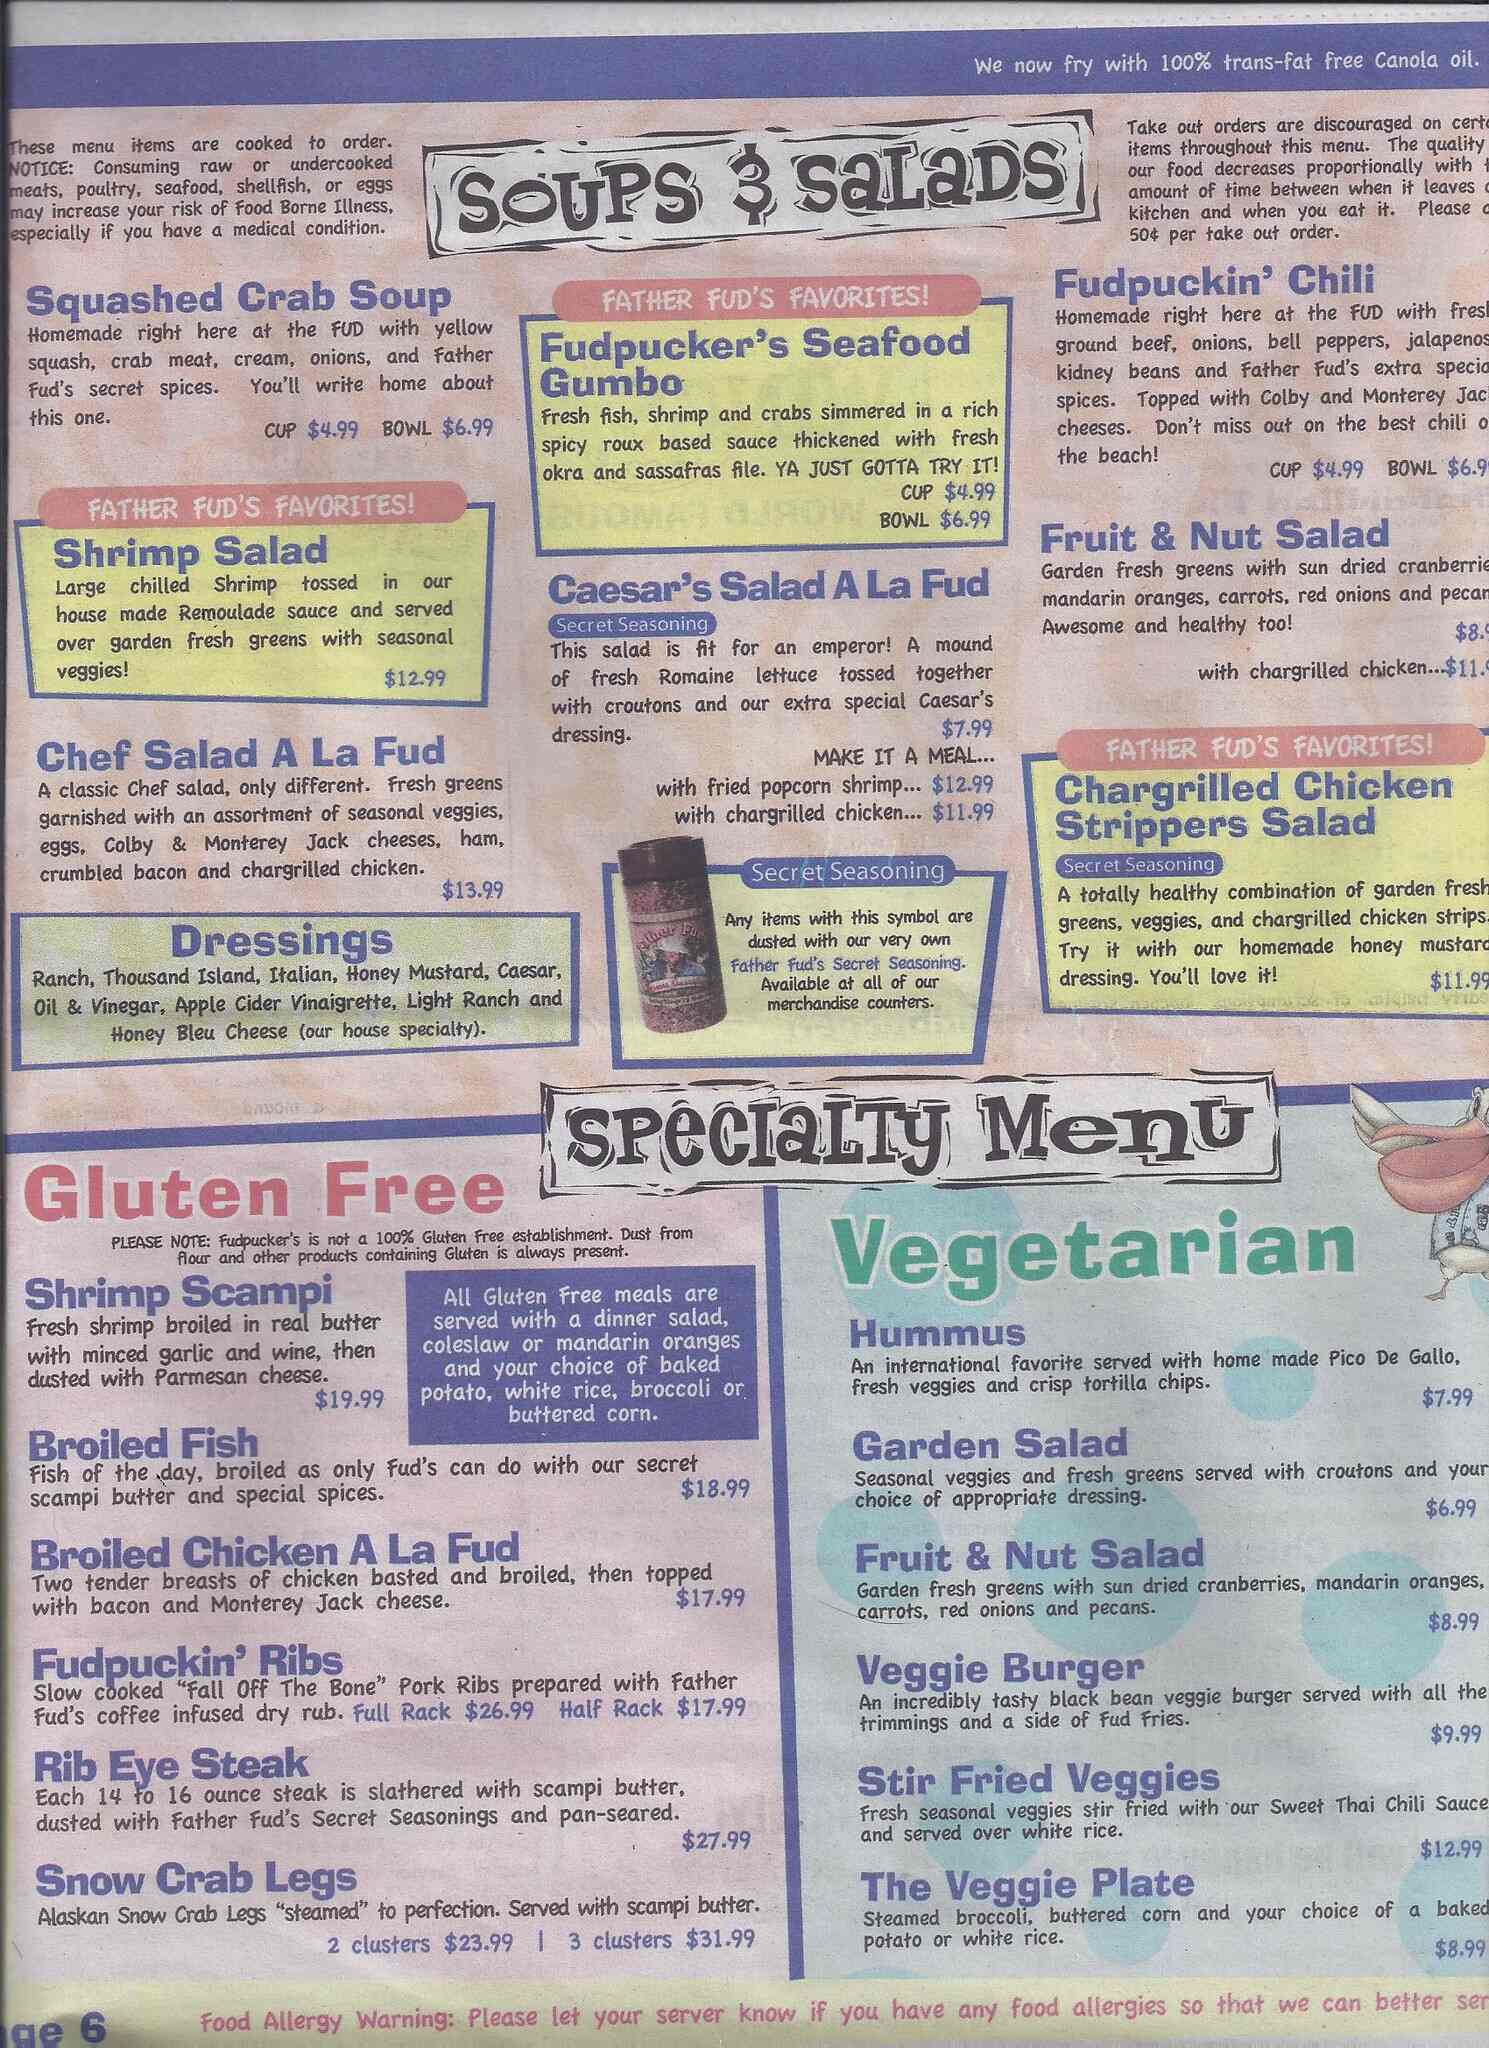 We now fry with 100% trans-fat free Canola oil.
These menu items are cooked to order.
NOTICE: Consuming raw or undercooked
meats, poultry, seafood, shellfish, or eggs
may increase your risk of Food Borne Illness,
especially if you have a medical condition.
SOUPS & SALADS
Take out orders are discouraged on
items throughout this menu. The quality
our food decreases proportionally with
amount of time between when it leaves
kitchen and when you eat it. Please
50¢ per take out order.
Squashed Crab Soup
Homemade right here at the FUD with yellow
squash, crab meat, cream, onions, and Father
Fud's secret spices. You'll write home about
this one.
CUP $4.99 BOWL $6.99
FATHER FUD'S FAVORITES!
Shrimp Salad
Large chilled Shrimp tossed in our
house made Remoulade sauce and served
over garden fresh greens with seasonal
veggies!
$12.99
Chef Salad A La Fud
A classic Chef salad, only different. Fresh greens
garnished with an assortment of seasonal veggies,
eggs, Colby & Monterey Jack cheeses, ham,
crumbled bacon and chargrilled chicken.
$13.99
Dressings
Ranch, Thousand Island, Italian, Honey Mustard, Caesar,
Oil & Vinegar, Apple Cider Vinaigrette, Light Ranch and
Honey Bleu Cheese (our house specialty).
FATHER FUD'S FAVORITES!
Fudpucker's Seafood
Gumbo
Fresh fish, shrimp and crabs simmered in a rich
spicy roux based sauce thickened with fresh
okra and sassafras file. YA JUST GOTTA TRY IT!
CUP $4.99
BOWL $6.99
Caesar's Salad A La Fud
Secret Seasoning
This salad is fit for an emperor! A mound
of fresh Romaine lettuce tossed together
with croutons and our extra special Caesar's
dressing.
$7.99
MAKE IT A MEAL...
with fried popcorn shrimp... $12.99
with chargrilled chicken... $11.99
Secret Seasoning
Any items with this symbol are
dusted with our very own
Father Fud's Secret Seasoning.
Available at all of our
merchandise counters.
Fudpuckin' Chili
Homemade right here at the FUD with
ground beef, onions, bell peppers, jalapenos
kidney beans and Father Fud's extra
spices. Topped with Colby and Monterey
cheeses. Don't miss out on the best chili
the beach!
CUP $4.99 BOWL
Fruit & Nut Salad
Garden fresh greens with sun dried
mandarin oranges, carrots, red onions and
Awesome and healthy too!
with chargrilled chicken...
FATHER FUD'S FAVORITES!
Chargrilled Chicken
Strippers Salad
Secret Seasoning
A totally healthy combination of garden fresh
greens, veggies, and chargrilled chicken strips.
Try it with our homemade honey mustard
dressing. You'll love it!
$11.99
SPECIALTY MENU
Gluten Free
PLEASE NOTE: Fudpucker's is not a 100% Gluten Free establishment. Dust from
flour and other products containing Gluten is always present.
Shrimp Scampi
Fresh shrimp broiled in real butter
with minced garlic and wine, then
dusted with Parmesan cheese.
$19.99
All Gluten Free meals are
served with a dinner salad,
coleslaw or mandarin oranges
and your choice of baked
potato, white rice, broccoli or
buttered corn.
Broiled Fish
Fish of the day, broiled as only Fud's can do with our secret
scampi butter and special spices.
$18.99
Broiled Chicken A La Fud
Two tender breasts of chicken basted and broiled, then topped
with bacon and Monterey Jack cheese.
$17.99
Fudpuckin' Ribs
Slow cooked "Fall Off The Bone" Pork Ribs prepared with Father
Fud's coffee infused dry rub. Full Rack $26.99 Half Rack $17.99
Rib Eye Steak
Each 14 to 16 ounce steak is slathered with scampi butter,
dusted with Father Fud's Secret Seasonings and pan-seared.
$27.99
Snow Crab Legs
Alaskan Snow Crab Legs "steamed" to perfection. Served with scampi butter.
2 clusters $23.99 | 3 clusters $31.99
Vegetarian
Hummus
An international favorite served with home made Pico De Gallo,
fresh veggies and crisp tortilla chips.
$7.99
Garden Salad
Seasonal veggies and fresh greens served with croutons and your
choice of appropriate dressing.
$6.99
Fruit & Nut Salad
Garden fresh greens with sun dried cranberries, mandarin oranges,
carrots, red onions and pecans.
$8.99
Veggie Burger
An incredibly tasty black bean veggie burger served with all the
trimmings and a side of Fud Fries.
$9.99
Stir Fried Veggies
Fresh seasonal veggies stir fried with our Sweet Thai Chili Sauce
and served over white rice.
$12.99
The Veggie Plate
Steamed broccoli, buttered corn and your choice of a baked
potato or white rice.
$8.99
6
Food Allergy Warning: Please let your server know if you have any food allergies so that we can better